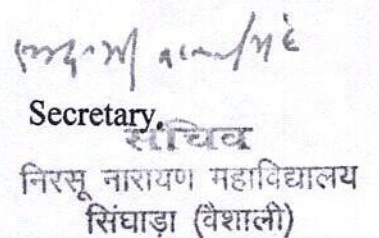 Secretary.
सचिव
निरसू नारायण महाविद्यालय
सिंघाड़ा (वैशाली)